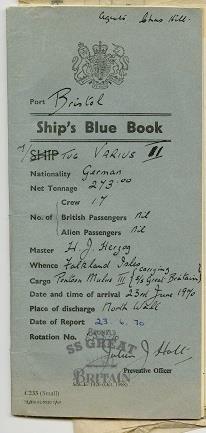 Agents Chas Hill.
Port Bristol
Ship's Blue Book
M/ SHIP TUG VARIUS III
Nationality German
Net Tonnage 273.00
Crew 17
No. of British Passengers Nil
Alien Passengers Nil
Master H. J. Herzog
Whence Falkland Isles
Cargo Pontoon Mulus III (carrying S/S Great Britain)
Date and time of arrival 23rd June 1970
Place of discharge North Wall
Date of Report 23.6.70
Rotation No.
SS GREAT
BRITAIN
Julian J Hall
Preventive Officer
C233 (Small)